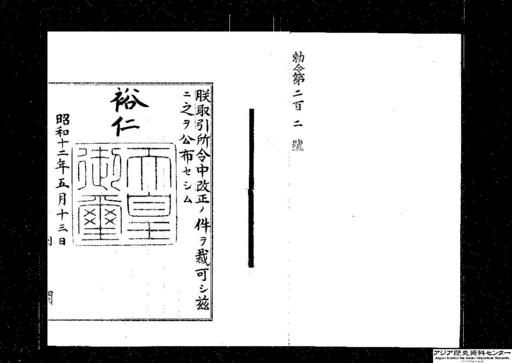 勅令第二百二號
朕取引所令中改正ノ件ヲ裁可シ茲
ニ之ヲ公布セシム
裕仁
天皇
御璽
昭和十二年五月十三日
アジア歴史資料センター
Japan Center for Asian Historical Records